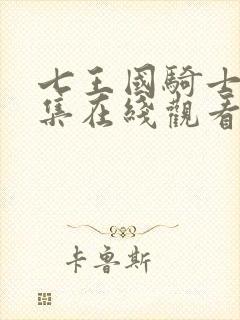 七王國騎士
集在綫觀看
卡魯斯